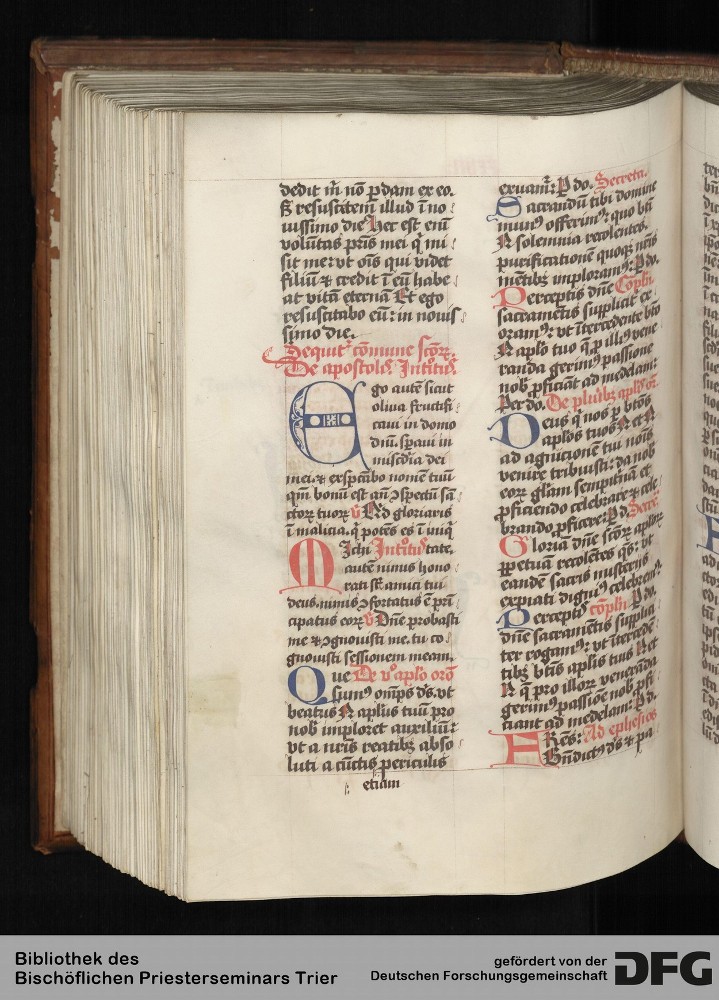 dedit m̄ nō ꝑdam ex eo.
ſꝫ reſuſcitem̄ illud ī no
uiſſimo die Hec eſt enī
volūtas pr̄is mei q̄ mi
ſit me: vt oīs qui videt
filiū ⁊ credit ī eū habe
at vitā eternā Et ego
reſuſcitabo eū: in nouiſ
ſimo die.
Sequit᷑ cōmune ſcōꝝ.
De apoſtolis Introitus
Ego autē ſicut
oliua fructifi
caui in domo
dn̄i. ſꝑaui in
miſcd̓ia dei
mei: ⁊ exſpectabo nomē tuū
qm̄ bonū eſt an̄ ꝯſpectū sā
ctoꝝ tuoꝝ v̓ Qͥd gloriaris
ī malicia. q̓ potēs es ī iniqͥ
Michi Introitus tate.
autē nimis hono
rati ſt̄ amici tui
deus. nimis ꝯfortatus ē prī
cipatus eoꝝ v̓ Dn̄e ꝓbaſti
me ⁊ ꝯgnouiſti me. tu co
gnouiſti ſeſſionem meam.
Que De vͦ aplo oro
ſumꝰ om̄ps ds. vt
beatus N aplus tuū pro
nob̓ imploret auxiliū:
vt a nr̄is reatibꝫ abſo
luti a cūctis periculis
etiam
exuam᷑: P do. Secreta.
Sacrandū tibi domine
munꝰ offerimꝰ: quo btī
N ſolemnia recolentes.
purificationē quoqꝫ nr̄is
mētibꝫ imploramꝰ: P do.
Perceptis dn̄e Cōplēn
ſacramētis ſupplices ex
oramꝰ: vt ītercedente bt̄o
N aplo tuo q̄ ꝓ illiꝰ vene
randa gerimꝰ paſſione
nob̓ ꝓficiāt ad medelam:
Per do. De pluribꝫ aplis or̄
Deus qͥ nos ꝑ bt̄os
aplos tuos N et N
ad agnicionē tui noīs
venire tribuiſti: da nob̓
eoꝝ gl̄am ſempitnā et
ꝓficiendo celebrare ⁊ cele
brando ꝓficere: P d. Secre.
Gloriā dn̄e ſcōꝝ aploꝝ
ꝑpetuā recolētes qs: vt
eandē ſacris miſteriis
expiati digniꝰ celebremꝰ.
Perceptis cōplēn P do.
dn̄e ſacramētis ſuppli
ter rogamꝰ: vt ītercedē
tibꝫ bt̄is aplis tuis N et
N q̄ pro illoꝝ venerāda
gerimꝰ paſſiōe nob̓ ꝓfi
ciant ad medelam: P d.
Fr̄es: Ad epheſios
Bn̄dictꝰ ds ⁊ pa
Bibliothek des
Bischöflichen Priesterseminars Trier
gefördert von der
Deutschen Forschungsgemeinschaft
DFG